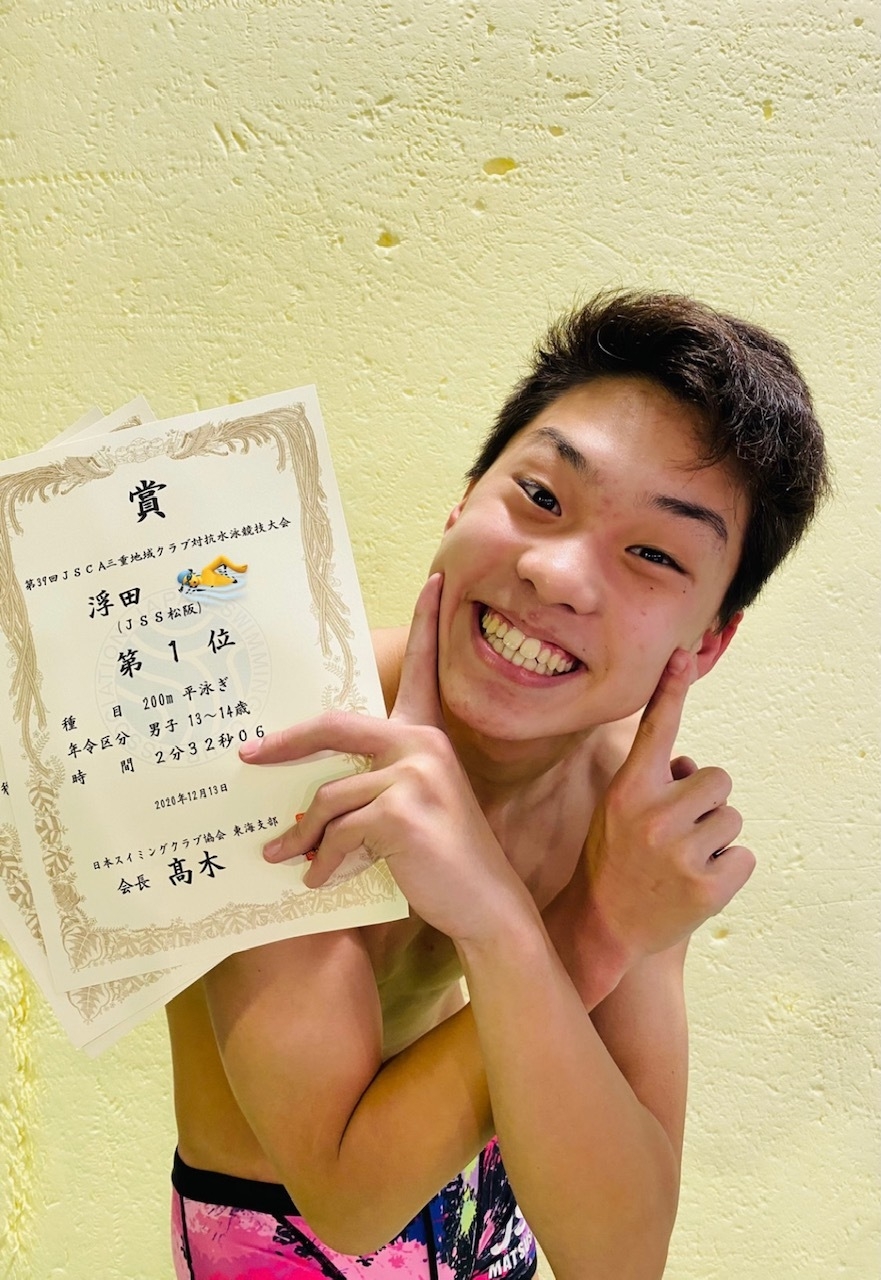 賞
第39回JSCA三重地域クラブ対抗水泳競技大会
浮田
(JSS松阪)
第 1 位
種 目 200m 平泳ぎ
年令区分 男子 13〜14歳
時 間 2分32秒06
2020年12月13日
日本スイミングクラブ協会 東海支部
会長 髙木